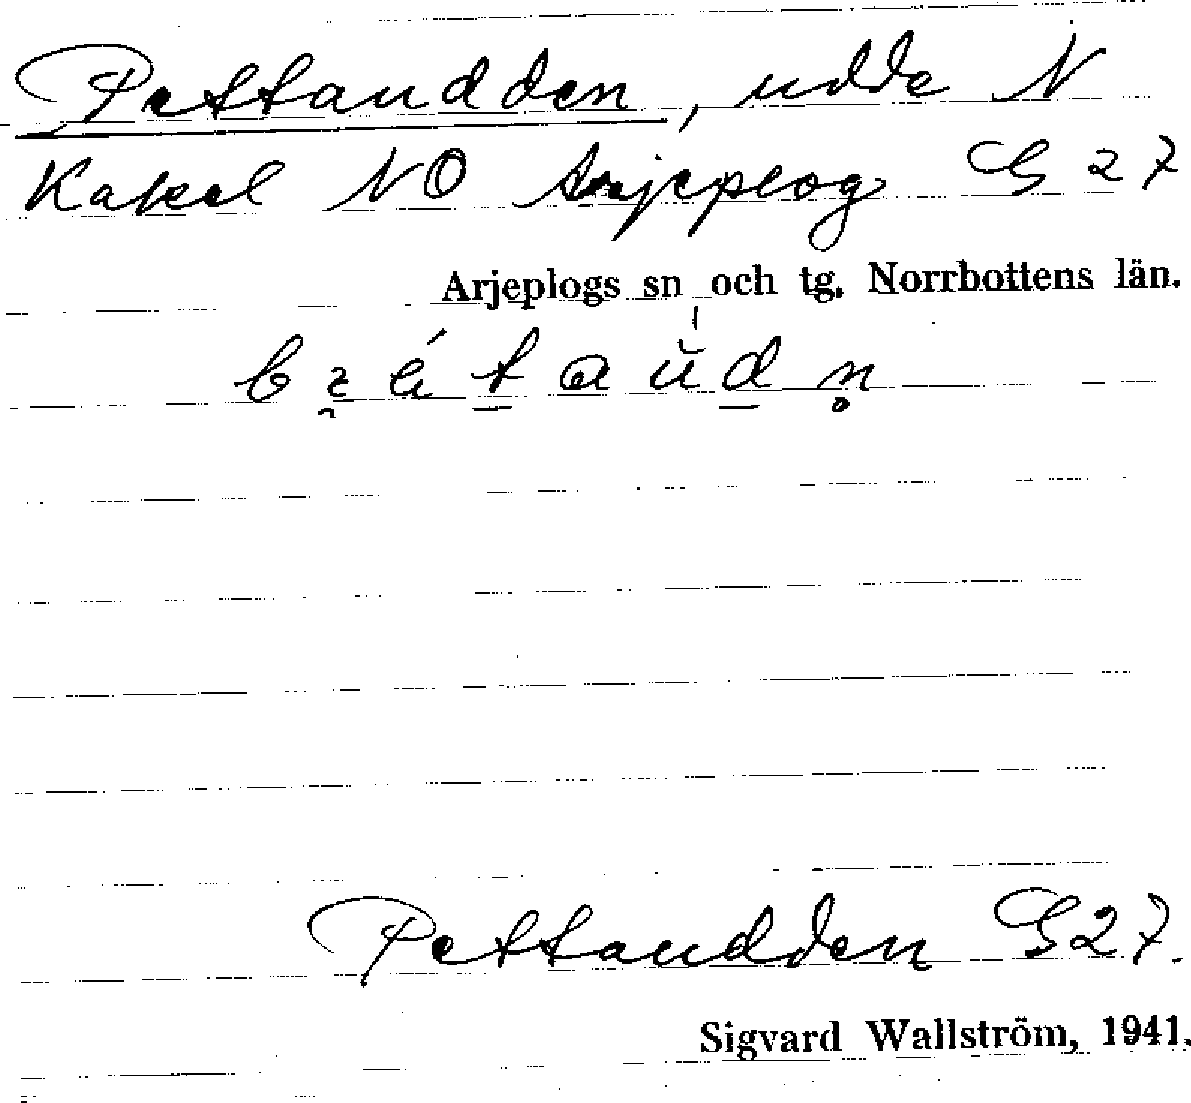 Pettaudden, udde N
Kakel NO Arjeplog G 27
Arjeplogs sn och tg. Norrbottens län.
Pettaudden G27.
Sigvard Wallström, 1941.